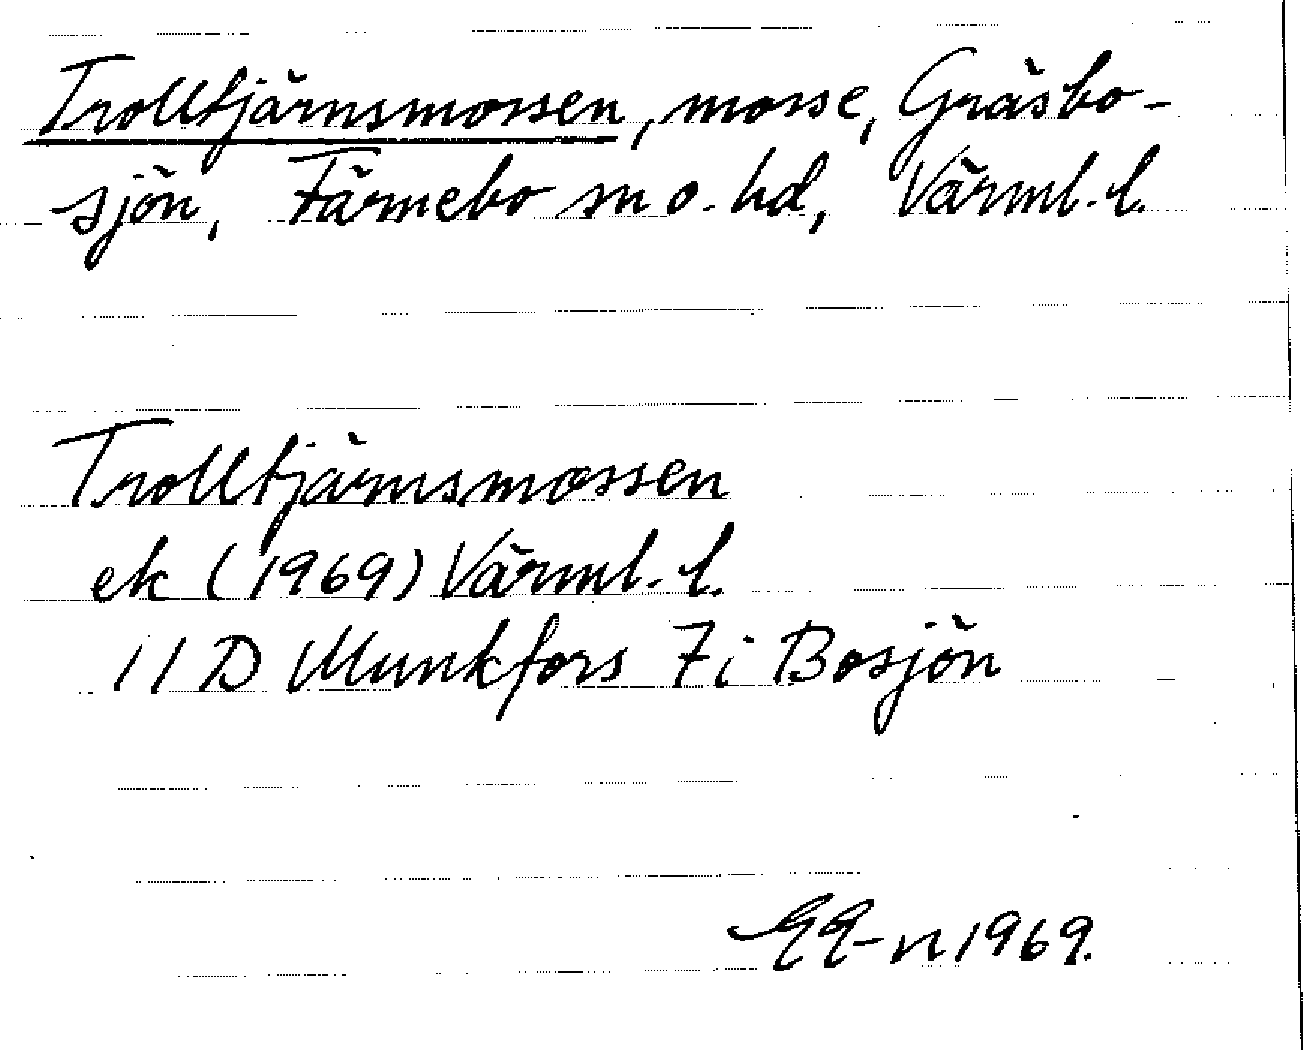 Trolltjärnsmossen, mosse, Gräsbo-
sjön, Färnebo sn o. hd, Värml. l.
Trolltjärnsmossen
ek (1969) Värml. l.
11 D Munkfors 7 i Bosjön
1969.